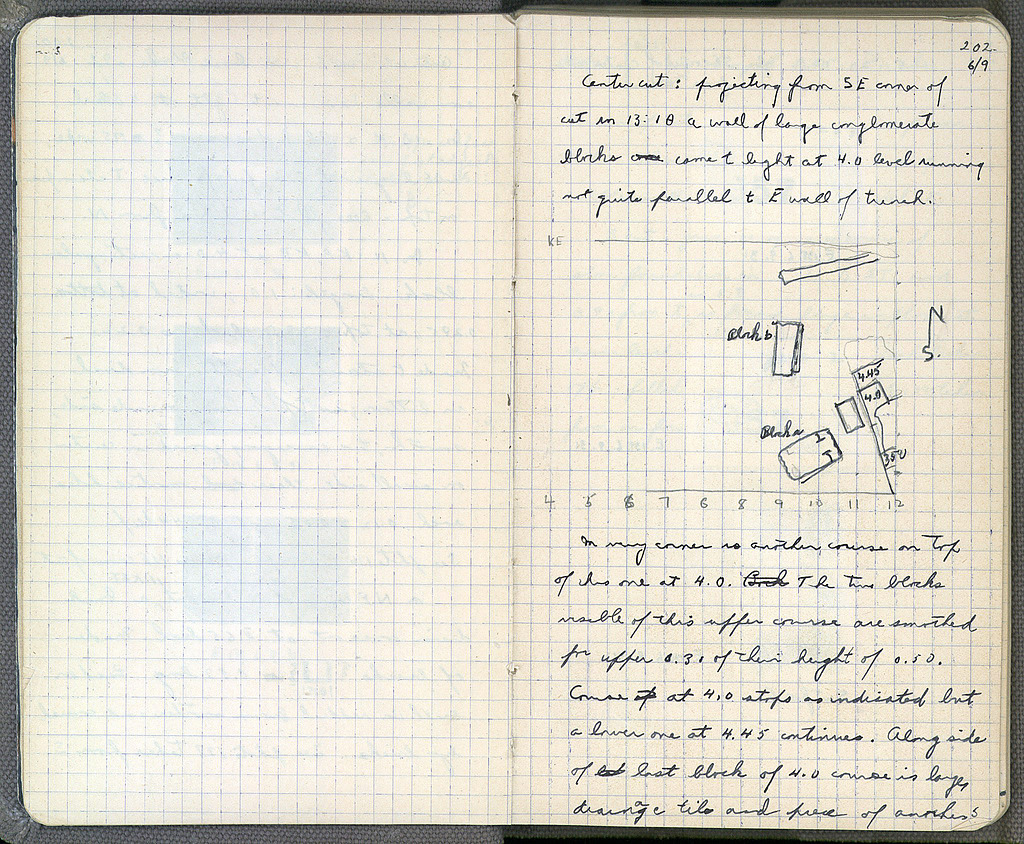 202
6/9
Center cut : projecting from SE corner of
cut in 13-18 a wall of large conglomerate
blocks came t light at 4.0 level running
not quite parallel t E wall of trench.
KE
Block b
N
S.
4.45
4.0
Block a
3.50
4 5 6 7 8 9 10 11 12
In very corner is another course on top
of this one at 4.0. The two blocks
visible of this upper course are smothed
for upper 0.31 of their height of 0.50.
Course at 4.0 stops as indicated but
a lower one at 4.45 continues. Along side
of last block of 4.0 course is large
drainage tile and piece of another